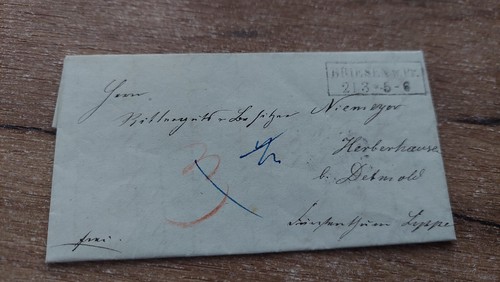 BRIESEN W. PR.
21 3 * 5-6
Herrn
Rittergutsbesitzer Niemeyer
Herberhause
b. Detmold
Fürstenthum Lippe
3
frei.